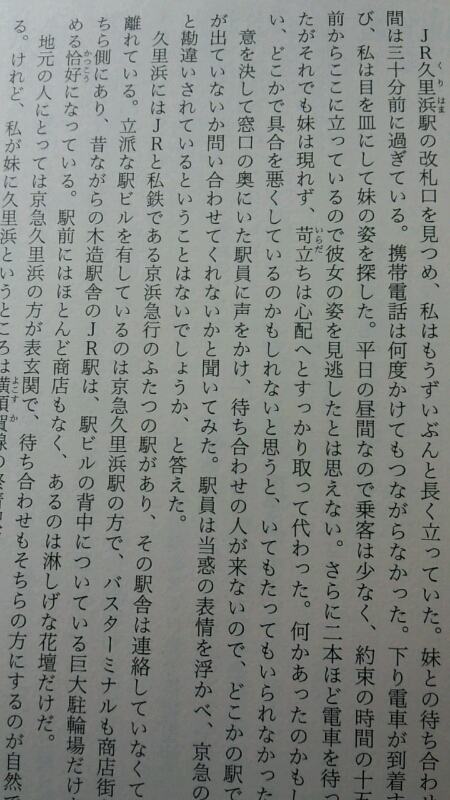 JR久里浜駅の改札口を見つめ、私はもうずいぶんと長く立っていた。妹との待ち合わせ
間は三十分前に過ぎている。携帯電話は何度かけてもつながらなかった。下り電車が到着す
び、私は目を皿にして妹の姿を探した。平日の昼間なので乗客は少なく、約束の時間の十五
前からここに立っているので彼女の姿を見逃したとは思えない。さらに二本ほど電車を待っ
たがそれでも妹は現れず、苛立ちは心配へとすっかり取って代わった。何かあったのかもし
い、どこかで具合を悪くしているのかもしれないと思うと、いてもたってもいられなかった
意を決して窓口の奥にいた駅員に声をかけ、待ち合わせの人が来ないので、どこかの駅で
が出ていないか問い合わせてくれないかと聞いてみた。駅員は当惑の表情を浮かべ、京急の
と勘違いされているということはないでしょうか、と答えた。
久里浜にはJRと私鉄である京浜急行のふたつの駅があり、その駅舎は連絡していなくて
離れている。立派な駅ビルを有しているのは京急久里浜駅の方で、バスターミナルも商店街
ちら側にあり、昔ながらの木造駅舎のJR駅は、駅ビルの背中についている巨大駐輪場だけ
める恰好になっている。駅前にはほとんど商店もなく、あるのは淋しげな花壇だけだ。
地元の人にとっては京急久里浜の方が表玄関で、待ち合わせもそちらの方にするのが自然で
る。けれど、私が妹に久里浜というところは横須賀線の終着